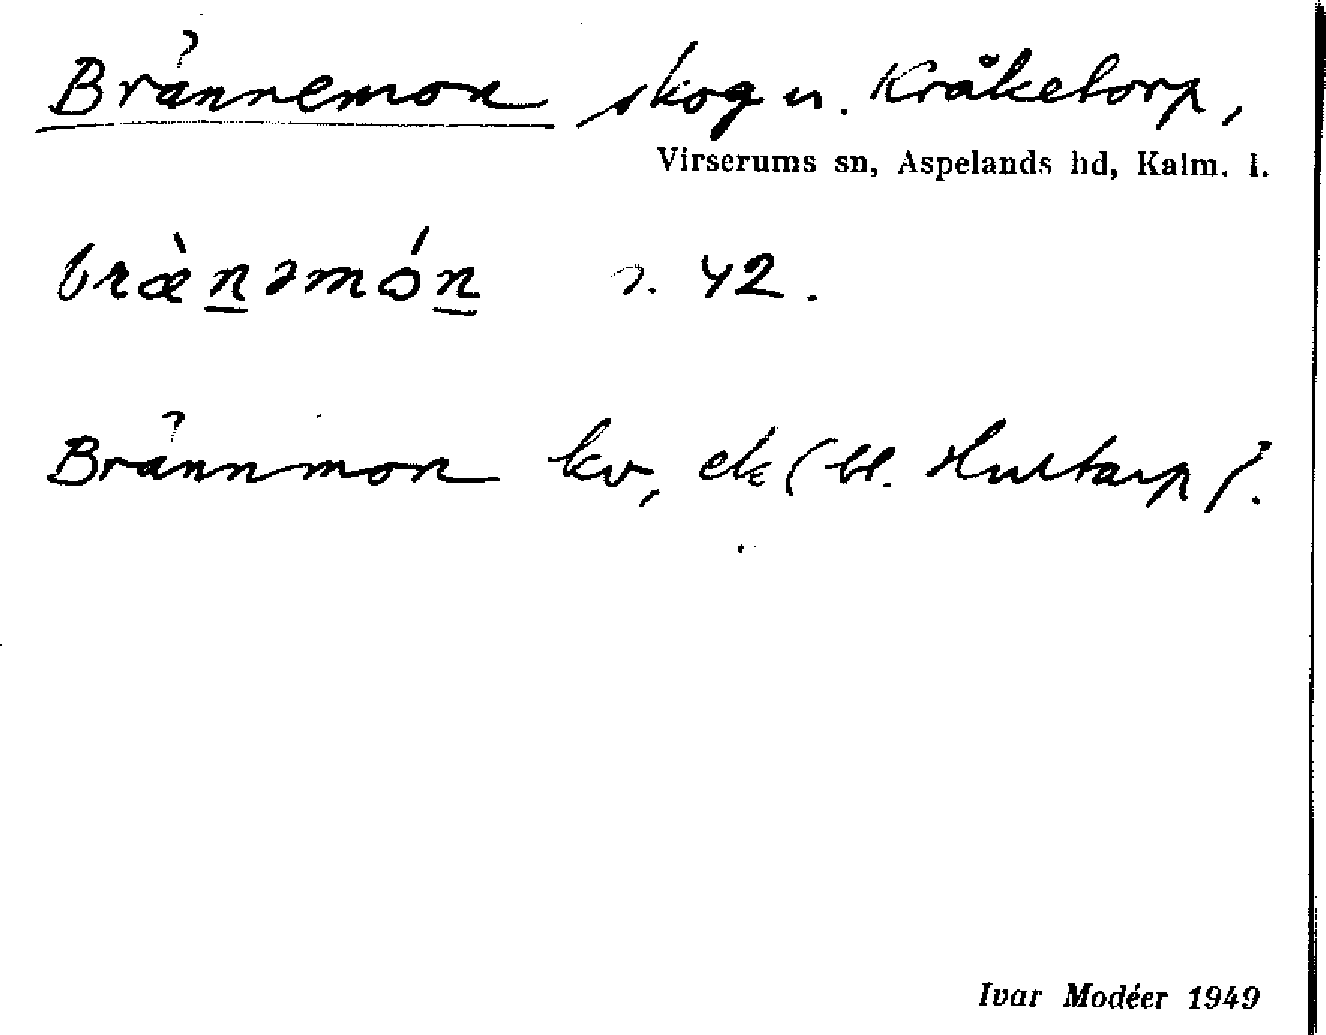 Brännemon skog u. Kråketorp,
Virserums sn, Aspelands hd, Kalm. l.
bræ̀n̲əmón̲ r. 42.
Brännmon kv, ek (bl. Hultarp).
Ivar Modéer 1949